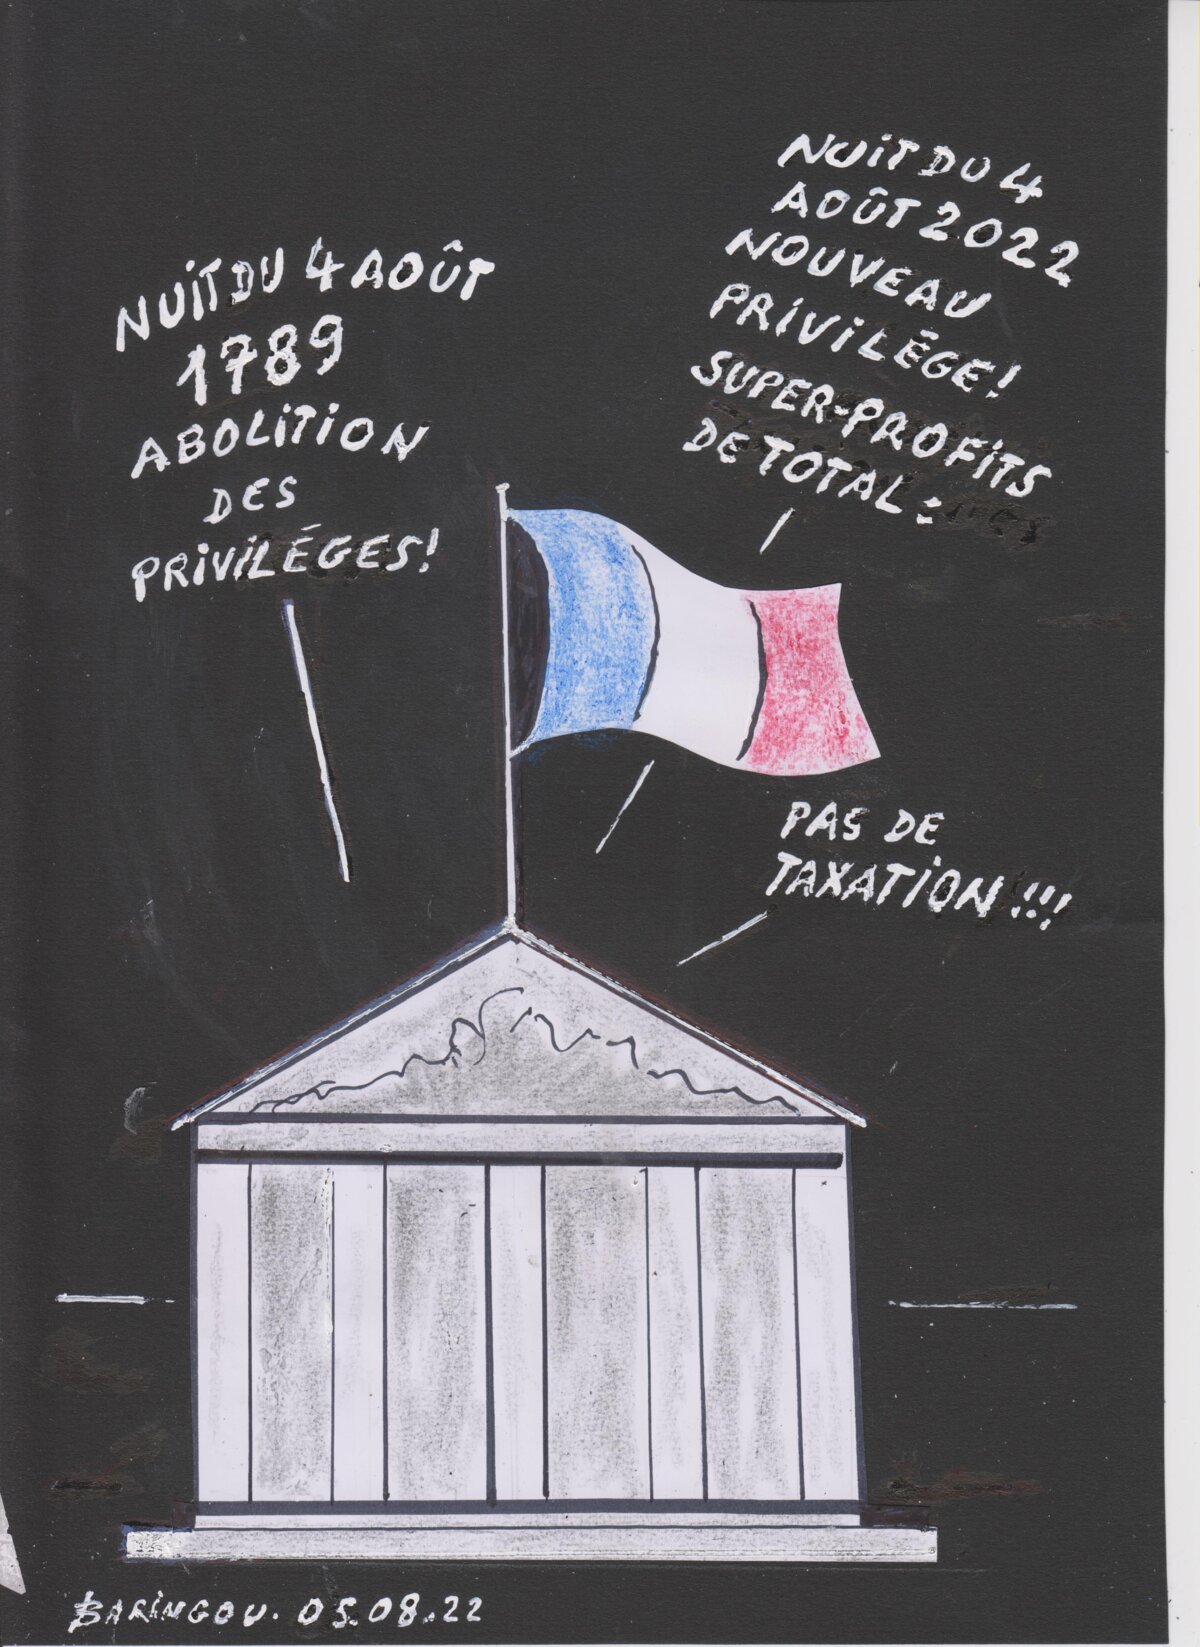 NUIT DU 4 AOÛT
1789
ABOLITION
DES
PRIVILÉGES!
NUIT DU 4
AOÛT 2022
NOUVEAU
PRIVILÉGE!
SUPER-PROFITS
DE TOTAL:
PAS DE
TAXATION!!!
BARINGOU. 05.08.22